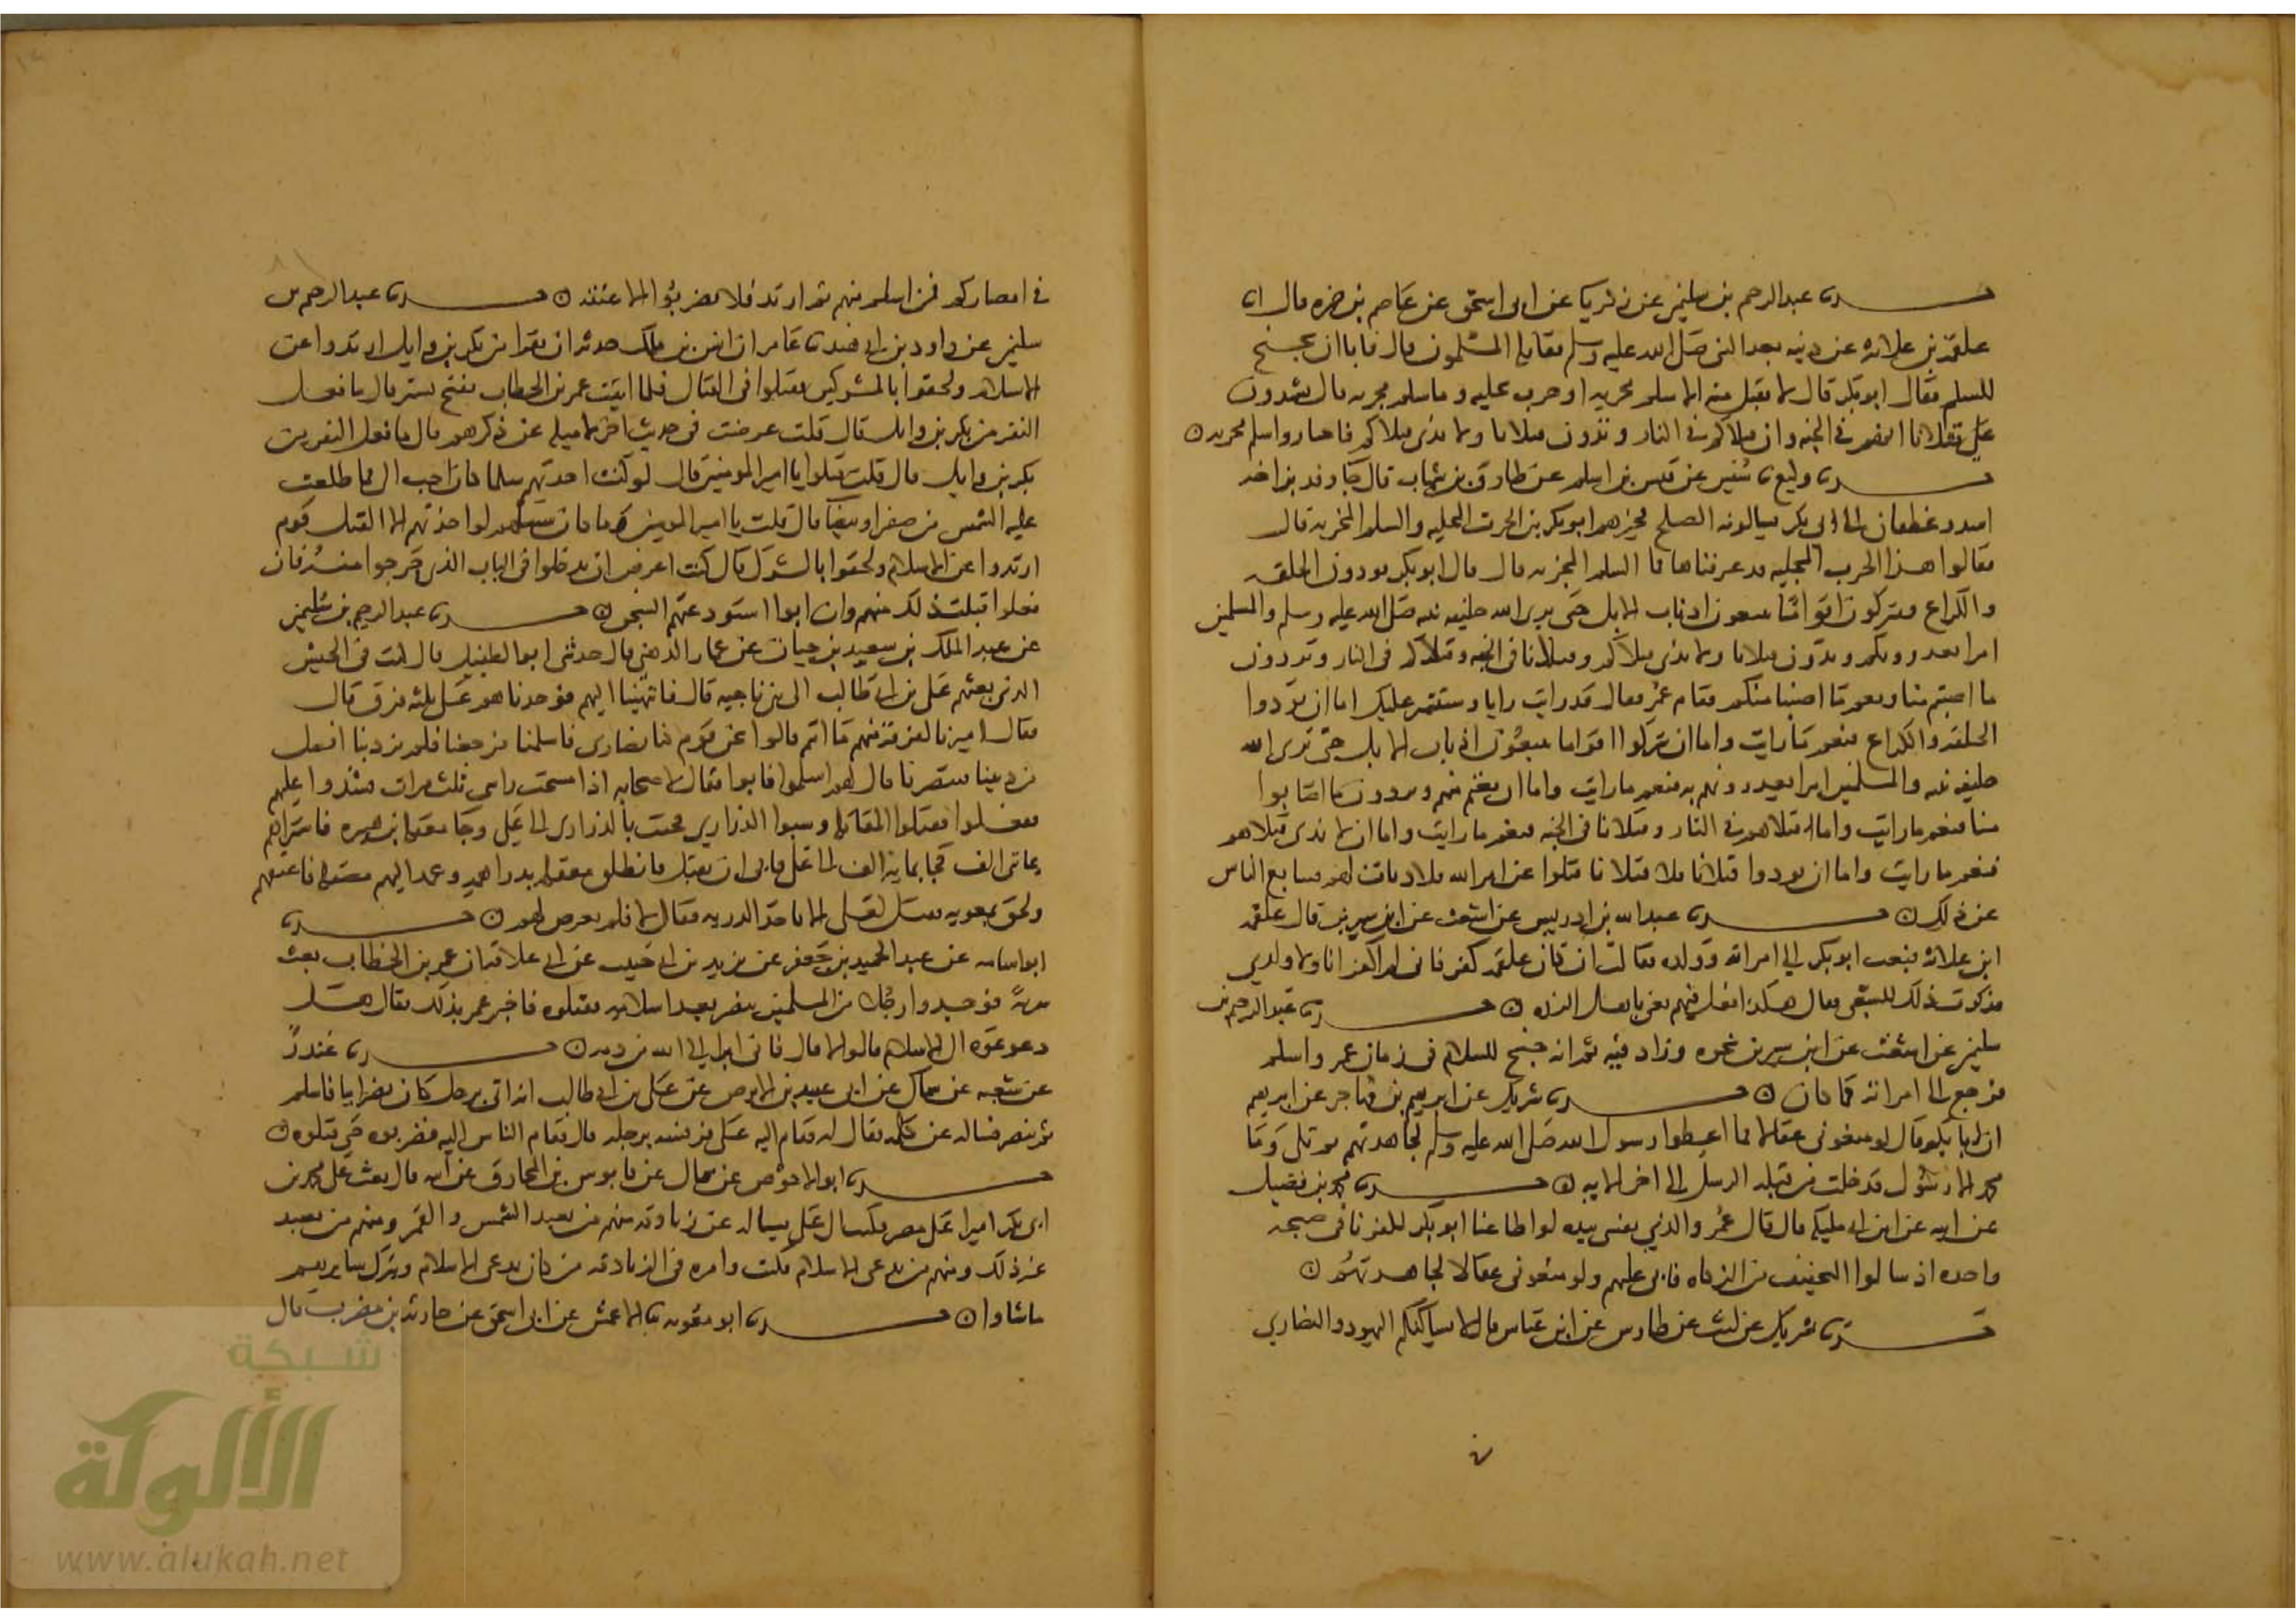 حدثنا عبد الرحيم بن سليمن عن زكريا عن ابى اسحق عن عاصم بن ضمره قال ارتد
علقمة بن علاثه عن دينه بعد النبى صلى الله عليه وسلم فقاتله المسلمون قال فابا ان يجنح
للسلم فقال ابو بكر قال لا نقبل منه الا سلم مخزيه او حرب مجليه وما سلم مخزيه قال تشهدون
على قتلانا انهم فى الجنه وان قتلاكم فى النار وتدون قتلانا ولا ندى قتلاكم فاختاروا سلم مخزيه ن
حدثنا وكيع نا سفين عن قيس بن اسلم عن طارق بن شهاب قال جا وفد بزاخه
اسد وغطفان الى ابى بكر يسالونه الصلح فخيرهم ابو بكر بين الحرب المجليه والسلم المخزيه قال
فقالوا هذا الحرب المجليه قد عرفناها فما السلم المخزيه قال قال ابو بكر تودون الحلقه
والكراع وتتركون اقواما تتبعون اذناب الابل حتى يرى الله خليفه نبيه صلى الله عليه وسلم والمسلمين
امرا يعذرونكم وتدون قتلانا ولا ندى قتلاكم وقتلانا فى الجنه وقتلاكم فى النار وتردون
ما اصبتم منا ونغنم ما اصبنا منكم فقام عمر فقال قد رايت رايا وسنشير عليك اما ان يودوا
الحلقه والكراع فنعم ما رايت واما ان يتركوا اقواما يتبعون اذناب الابل حتى يرى الله
خليفه نبيه والمسلمين امرا يعذرونهم به فنعم ما رايت واما ان نغنم منهم ويردون ما اصابوا
منا فنعم ما رايت واما قتلاهم فى النار وقتلانا فى الجنه فنعم ما رايت واما ان لا ندى قتلاهم
فنعم ما رايت واما ان يودوا قتلانا فلا قتلانا قتلوا عن امر الله فلا ديات لهم فتتابع الناس
عن ذلك ن حدثنا عبد الله بن ادريس عن اشعث عن ابن سيرين قال علقمه
ابن علاثه فبعث ابو بكر الى امراته وولده فقالت ان كان علقمه كفر فانى لم اكفر انا ولا ولدى
فذكرت ذلك للشعبى فقال هكذا فعل بهم يعنى باهل الرده ن حدثنا عبد الرحيم بن
سليمن عن اشعث عن ابن سيرين نحوه وزاد فيه ثم انه جنح للسلم فى زمان عمر واسلم
فرجع الى امراته كما كان ن حدثنا شريك عن ابرهيم بن مهاجر عن ابرهيم
ان ابا بكر قال لو منعونى عقالا مما اعطوا رسول الله صلى الله عليه وسلم لجاهدتهم ثم تلى وما
محمد الا رسول قد خلت من قبله الرسل الى اخر الايه ن حدثنا محمد بن فضيل
عن ابيه عن ابن ابى مليكه قال قال عمر والذى نفسى بيده لو اطاعنا ابو بكر لكفرنا فى صبيحه
واحده اذ سالوا التخفيف من الزكاه فابى عليهم ولو منعونى عقالا لجاهدتهم ن
حدثنا شريك عن ليث عن طاوس عن ابن عباس قال لا يساكنكم اليهود والنصارى
فى امصاركم فمن اسلم منهم ثم ارتد فلا تضربوا الا عنقه ن حدثنا عبد الرحيم بن
سليمن عن داود بن ابى هند نا عامر ان انس بن ملك حدثه ان نفرا من بكر بن وايل ارتدوا عن
الاسلام ولحقوا بالمشركين فقتلوا فى القتال فلما اتيت عمر بن الخطاب بفتح تستر قال ما فعل
النفر من بكر بن وايل قال قلت عرضت فى حديث اخر لاشغله عن ذكرهم قال ما فعل النفر من
بكر بن وايل قال قلت قتلوا يا امير المومنين قال لو كنت اخذتهم سلما كان احب الى مما طلعت
عليه الشمس من صفرا وبيضا قال قلت يا امير المومنين وما كان سبيلهم لو اخذتهم الا القتل قوم
ارتدوا عن الاسلام ولحقوا بالشرك قال كنت اعرض ان يدخلوا فى الباب الذى خرجوا منه فان
فعلوا قبلت ذلك منهم وان ابوا استودعتهم السجن ن حدثنا عبد الرحيم بن سليمن
عن عبد الملك بن سعيد بن حيان عن عمار الدهنى قال حدثنى ابو الطفيل قال كنت فى الجيش
الذين بعثهم على بن ابى طالب الى بنى ناجيه قال فانتهينا اليهم فوجدناهم على ثلثه فرق قال
فقال اميرنا لفرقة منهم ما انتم قالوا نحن قوم كنا نصارى فاسلمنا فرجعنا فلم نر دينا افضل
من ديننا فتنصرنا قال لهم اسلموا فابوا فقال لاصحابه اذا مسحت راسى ثلث مرات فشدوا عليهم
ففعلوا فقتلوا المقاتله وسبوا الذرارى فجيت بالذرارى الى على وجا مصقله بن هبيره فاشتراهم
بمايتى الف فجا بمايه الف الى على فابى ان يقبل فانطلق مصقله بدراهمه وعمد اليهم مصقله فاعتقهم
ولحق بمعويه فقيل لعلى الا تاخذ الذريه فقال لا فلم يعرض لهم ن حدثنا
ابو اسامه عن عبد الحميد بن جعفر عن يزيد بن ابى حبيب عن ابى علاقه ان عمر بن الخطاب بعث
سرية فوجدوا رجلا من المسلمين تنصر بعد اسلامه فقتلوه فاخبر عمر بذلك فقال هل
دعوتموه الى الاسلام قالوا لا قال فانى ابرا الى الله من دمه ن حدثنا غندر
عن شعبه عن سماك عن ابن عبيد بن الابرص عن على بن ابى طالب انه اتى برجل كان نصرانيا فاسلم
ثم تنصر فساله عن كلمه فقال له فقام اليه على فرفسه برجله قال فقام الناس اليه فضربوه حتى قتلوه ن
حدثنا ابو الاحوص عن سماك عن قابوس بن المخارق عن ابيه قال بعث على محمد بن
ابى بكر اميرا على مصر فكتب الى على يساله عن زنادقه منهم من يعبد الشمس والقمر ومنهم من يعبد
غير ذلك ومنهم من يدعى الاسلام فكتب وامره فى الزنادقه من كان يدعى الاسلام ويترك سايرهم
ما شاوا ن حدثنا ابو معويه نا الاعمش عن ابى اسحق عن حارثه بن مضرب قال
شبكة
الألوكة
www.alukah.net